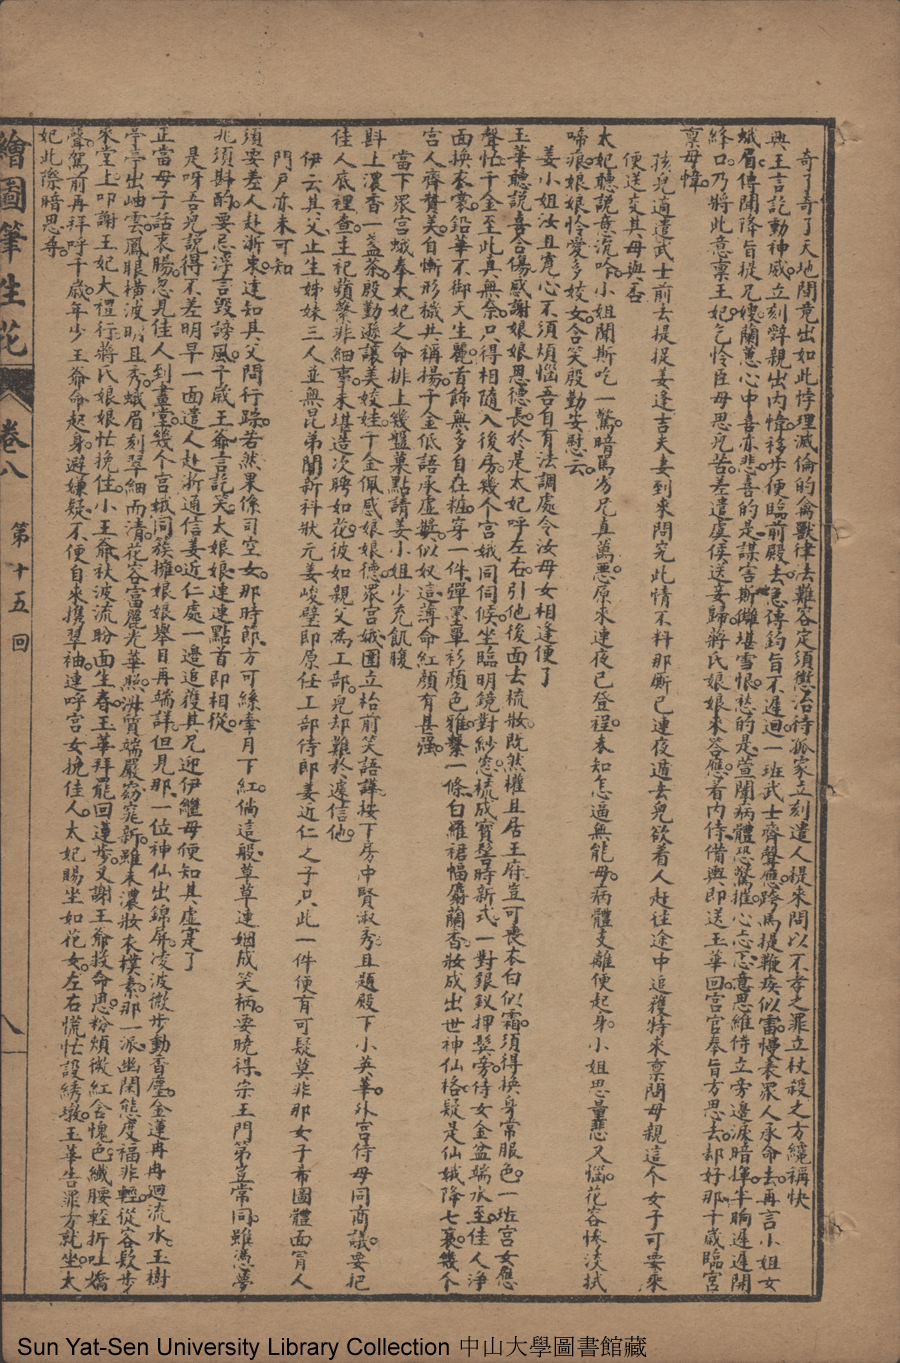 奇了奇了天地間竟出如此悖理滅倫的禽獸律法難容定須懲治待孤家立刻遣人提來問以不孝之罪立杖殺之方纔稱快
與王言訖動神威立刻聲親出內幃移步便臨前殿去急傳鈞旨不遲迴一班武士齊聲應跨馬提鞭疾似雷慢表眾人承命去再言小姐女
蛾眉傳聞降旨捉兄嫂蘭蕙心中喜亦悲喜的是謀害斯讎堪雪恨愁的是萱闈病體恐驚摧心忘忑意思維侍立旁邊淚暗揮半晌遲遲開
絳口乃將此意禀王妃乞怜臣母思兒苦差遣虞侯送妾歸蔣氏娘娘來答應看內侍備輿即送玉華回宮官奉旨方思去却好那千歲臨宮
禀母幃
孩兒適遣武士前去提捉姜逢吉夫妻到來問究此情不料那厮已連夜遁去兒欲着人赴往途中追獲特來禀問母親這个女子可要來
便送交其母與否
太妃聽說意沉吟小姐聞斯吃一驚暗罵劣兄真萬惡原來連夜已登程未知怎逼無能母病體支離便起身小姐思量悲又惱花容慘淡拭
啼痕娘娘怜愛多姣女含笑殷勤安慰云
姜小姐汝且寬心不須煩惱吾自有法調處令汝母女相逢便了
玉華聽說喜合傷感謝娘娘恩德長於是太妃呼左右引他後面去梳妝既然權且居王府豈可喪衣白似霜須得換身常服色一班宮女應
聲忙千金至此真無奈只得相隨入後房幾个宮娥同伺候坐臨明鏡對紗窓梳成寶髻時新式一對銀釵押鬂旁侍女金盆端水至佳人淨
面換衣裳鉛華不御天生麗首飾無多自在粧穿一件彈墨單衫顏色雅繫一條白羅裙幅麝蘭香妝成出世神仙格疑是仙娥降七襄幾个
宮人齊贊美自慚形穢共稱揚千金低語承虛獎似奴這薄命紅顏有甚強
當下眾宮娥奉太妃之命排上幾盤菓點請姜小姐少充飢腹
斟上濃香一盞茶殷勤遜讓美姣娃千金佩感娘娘德眾宮娥圍立枱前笑語譁按下房中賢淑秀且題殿下小英華外宮侍母同商議要把
佳人底裡查主祀蘋蘩非細事未堪造次聘如花彼如親父為工部兒却難於遽信他
伊云其父止生姊妹三人並無昆弟聞新科狀元姜峻壁即原任工部侍郎姜近仁之子只此一件便有可疑莫非那女子希圖體面冒人
門戶亦未可知
須要差人赴浙東達知其父問行踪若然果係司空女那時即方可絲牽月下紅倘這般草草連姻成笑柄要曉得宗王門第豈常同雖憑夢
兆須斟酌要忌浮言毀謗風千歲王爺言訖笑太娘娘連連點首即相從
是呀吾兒說得不差明早一面遣人赴浙通信姜近仁處一邊追獲其兄迎伊繼母便知其虛寔了
正當母子話衷腸忽見佳人到畫堂幾个宮娥同簇擁娘娘舉目再端詳但見那一位神仙出錦屏凌波微步動香塵金蓮冉冉迴流水玉樹
亭亭出岫雲鳳眼橫波明且秀蛾眉刻翠細而清花容富麗光華照淑質端嚴窈窕新雖未濃妝衣樸素那一派幽閑態度福非輕從容款步
來堂上叩謝王妃大禮行蔣氏娘娘忙挽住小王爺秋波流盼面生春玉華拜罷回蓮步又謝王爺救命恩粉頰微紅含愧色纖腰輕折吐嬌
聲駕前再拜呼千歲年少王爺命起身避嫌疑不便自來携翠袖連呼宮女挽佳人太妃賜坐如花女左右慌忙設綉墩玉華告罪方就坐太
妃此際暗思尋
繪圖筆生花
卷八
第十五回
八
Sun Yat-Sen University Library Collection 中山大學圖書館藏